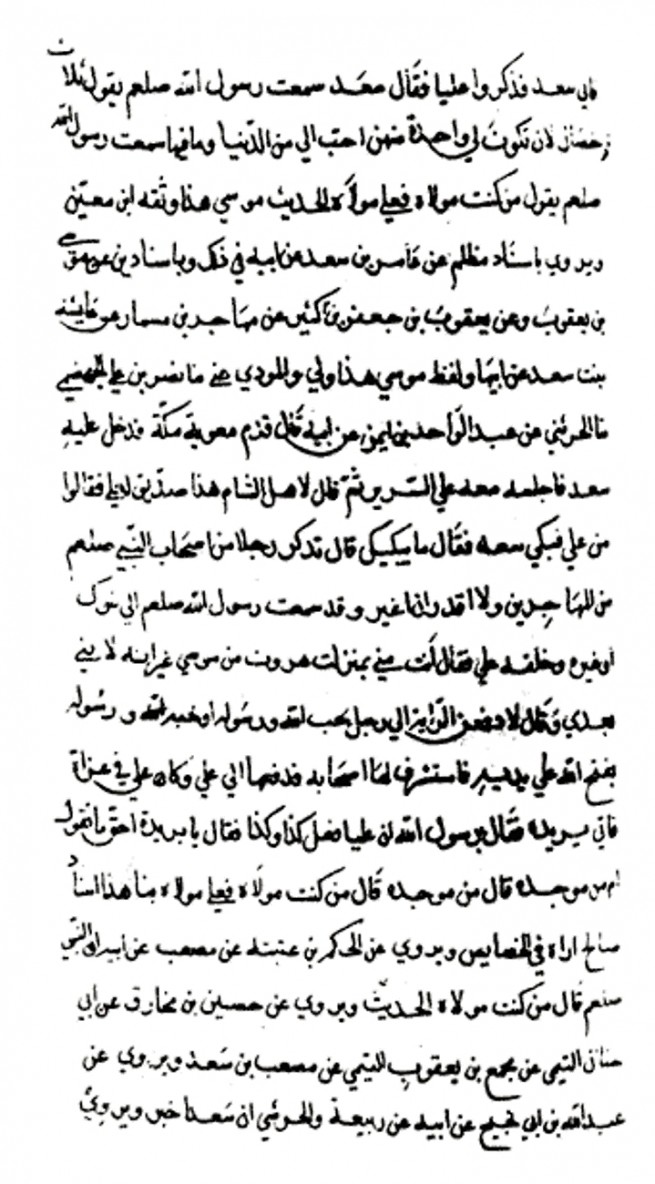 فاتي سعد فذكروا عليا فقال سعد سمعت رسول الله صلعم يقول ثلاث
خصال لان تكون لي واحدة منهن احب الي من الدنيا وما فيها سمعت رسول الله
صلعم يقول من كنت مولاه فعلي مولاه الحديث موسي هذا وثقه ابن معين
ويروي باسناد مظلم عن عامر بن سعد عن ابيه في ذلك وباسنادين عن
بن يعقوب وعن يعقوب بن جعفر بن كثير عن مهاجر بن مسمار عن عايشة
بنت سعد عن ابيها ولفظ موسي هذا ولي والمودي عني ما نصر بن علي الجهضمي
عن عبد الواحد بن ايمن عن ابيه قال قدم معوية مكة فدخل عليه
سعد فاجلسه معه علي السرير ثم قال لاهل الشام هذا صديق لعلي فقالوا
من علي فبكي سعد فقال ما يبكيك قال تذكر رجلا من اصحاب النبي صلعم
من المهاجرين ولا اقدر ان اغير وقد سمعت رسول الله صلعم الي تبوك
او غيره وخلفه علي فقال انت مني بمنزلت هرون من موسي غير انه لا نبي
بعدي وقال لادفعن الراية الي رجل يحب الله ورسوله او يحبه الله ورسوله
يفتح الله علي يديه فاستشرف لها اصحابه فدفعها الي علي وكان علي في غزاة
فاتي بريده فقال يرسول الله ان عليا فعل كذا وكذا فقال يا بريدة احق ما تقول
ام من موجده قال من موجده قال من كنت مولاه فعلي مولاه هذا اسناد
صالح اراه في الخصايص ويروي عن الحكم بن عتبة عن مصعب عن ابيه ان النبي
صلعم قال من كنت مولاه الحديث ويروي عن حسين بن مخارق عن ابي
التيمي عن مجمع بن يعقوب التيمي عن مصعب بن سعد ويروي عن
عبد الله بن ابي نجيح عن ابيه عن ربيعة ان سعدا خبر ويروي